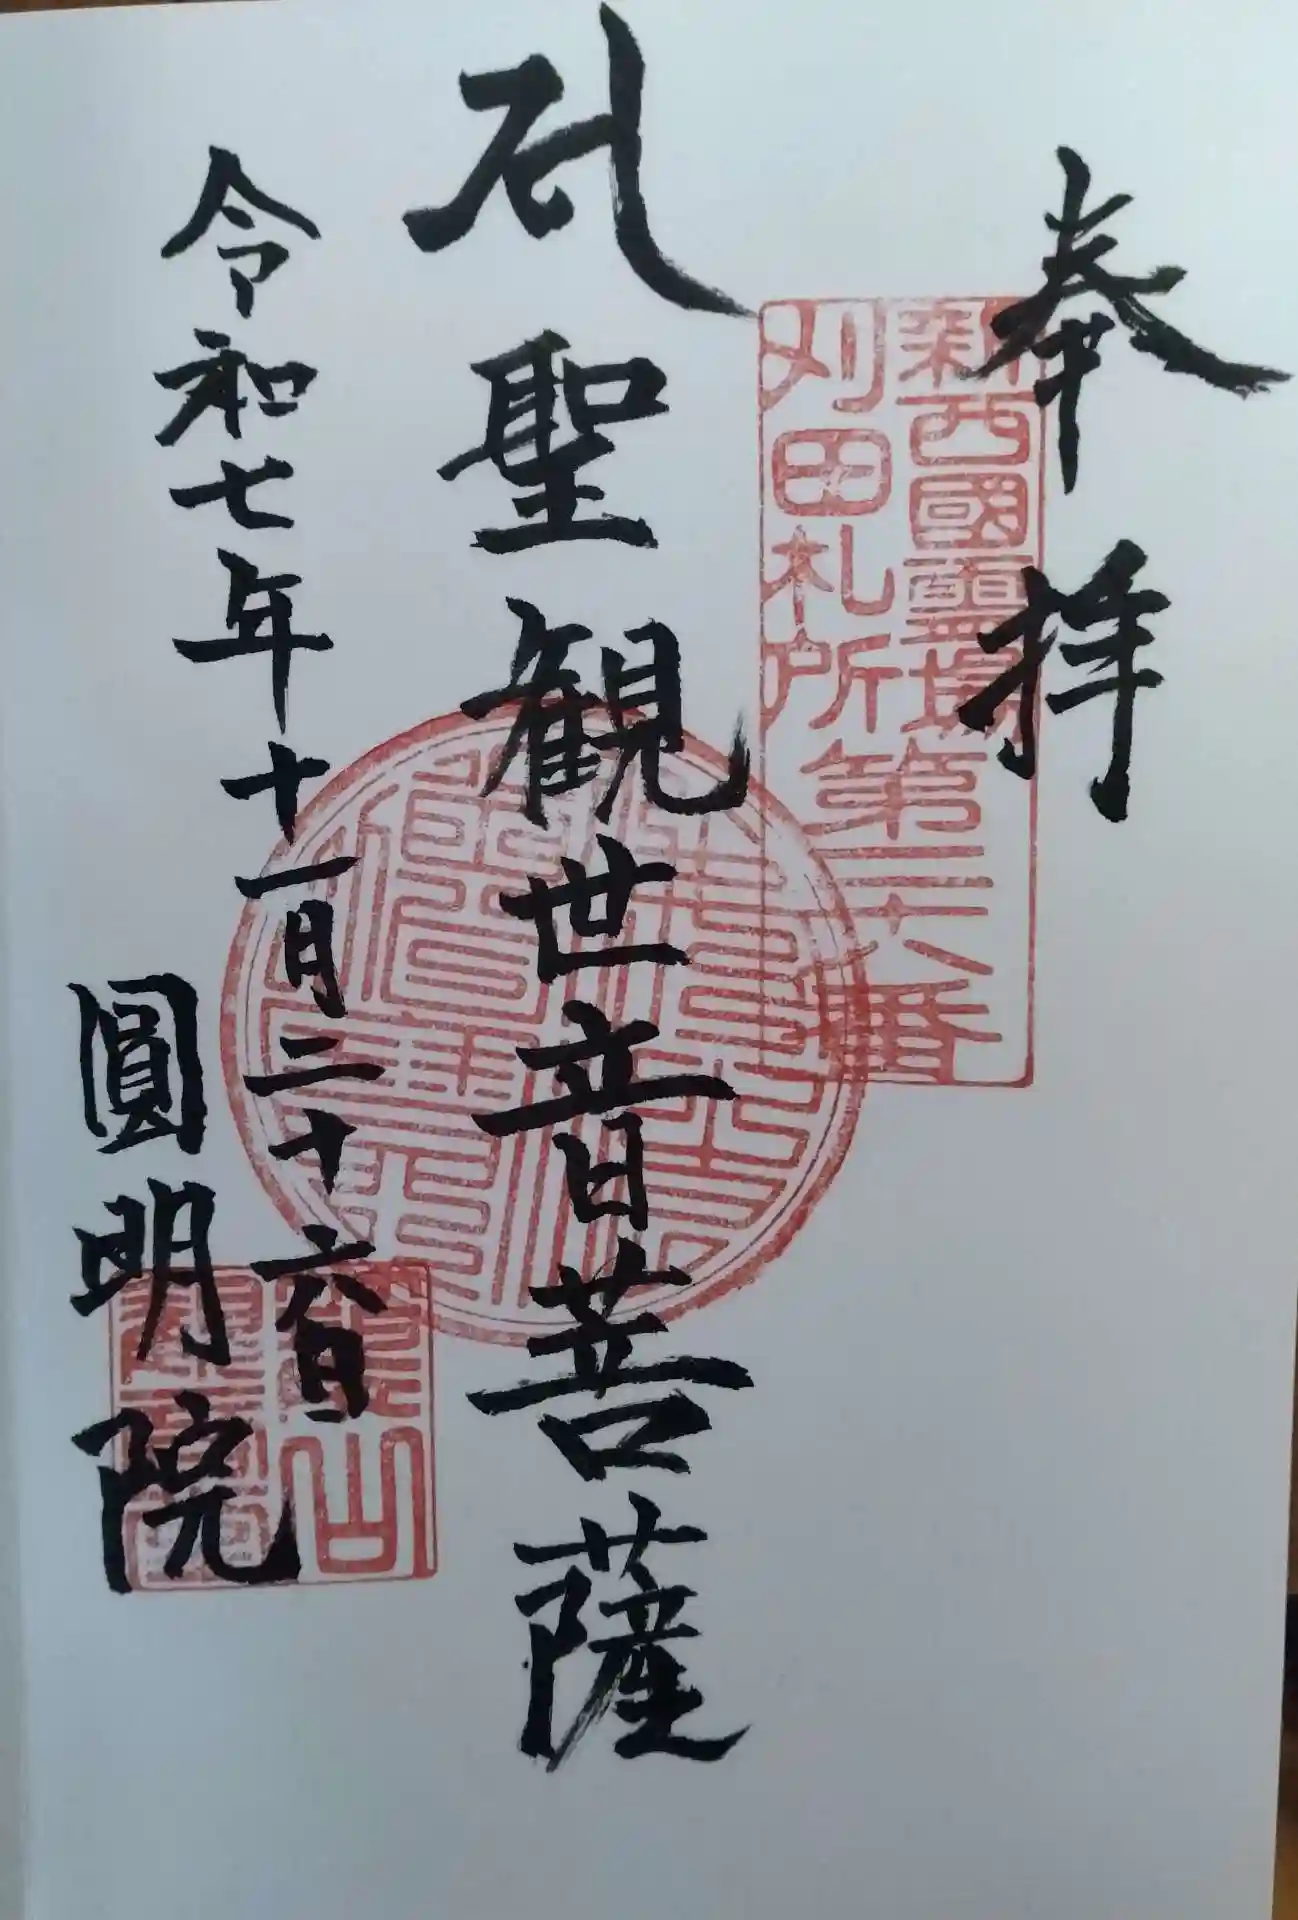 奉拝
新西國霊場
刈田札所第二十六番
聖観世音菩薩
令和七年十一月二十六日
圓明院